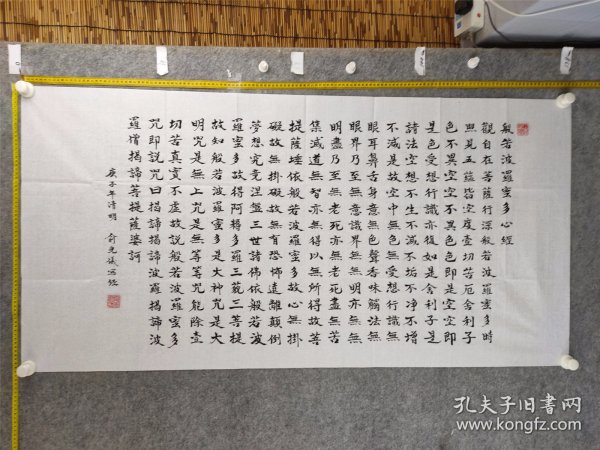 般若波羅蜜多心經
觀自在菩薩行深般若波羅蜜多時
照見五蘊皆空度壹切苦厄舍利子
色不異空空不異色色即是空空即
是色受想行識亦復如是舍利子是
諸法空想不生不滅不垢不淨不增
不減是故空中無色無受想行識無
眼耳鼻舌身意無色聲香味觸法無
眼界乃至無意識界無無明亦無無
明盡乃至無老死亦無老死盡無苦
集滅道無智亦無得以無所得故菩
提薩埵依般若波羅蜜多故心無掛
礙故無掛礙故無有恐怖遠離顛倒
夢想究竟涅盤三世諸佛依般若波
羅蜜多故得阿耨多羅三藐三菩提
故知般若波羅蜜多是大神咒是大
明咒是無上咒是無等等咒能除壹
切苦真實不虛故說般若波羅蜜多
咒即說咒曰揭諦揭諦波羅揭諦波
羅僧揭諦菩提薩婆訶
庚子年清明
寫經
孔夫子旧书网
www.kongfz.com